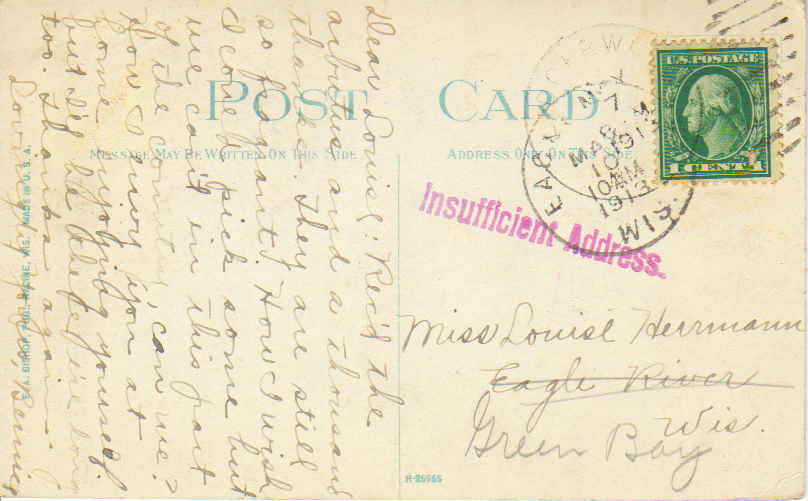 POST CARD
MESSAGE MAY BE WRITTEN ON THIS SIDE
ADDRESS ONLY ON THIS SIDE
Dear Louise: Rec'd the
arbutus and a thousand
thanks. They are still
so fragrant. How I wish
I could pick some but
we can't in this part
of the country, can we?
How I envy you at
home enjoying yourself
but I'll be there
too. Thanks again
Lovingly
E. A. BISHOP, PUB., RACINE, WIS. MADE IN U. S. A.
U.S. POSTAGE
1 CENT 1
EAGLE
MAY
7
10 AM
1913
WIS.
Insufficient Address.
Miss Louise Herrmann
Eagle River
Wis.
Green Bay